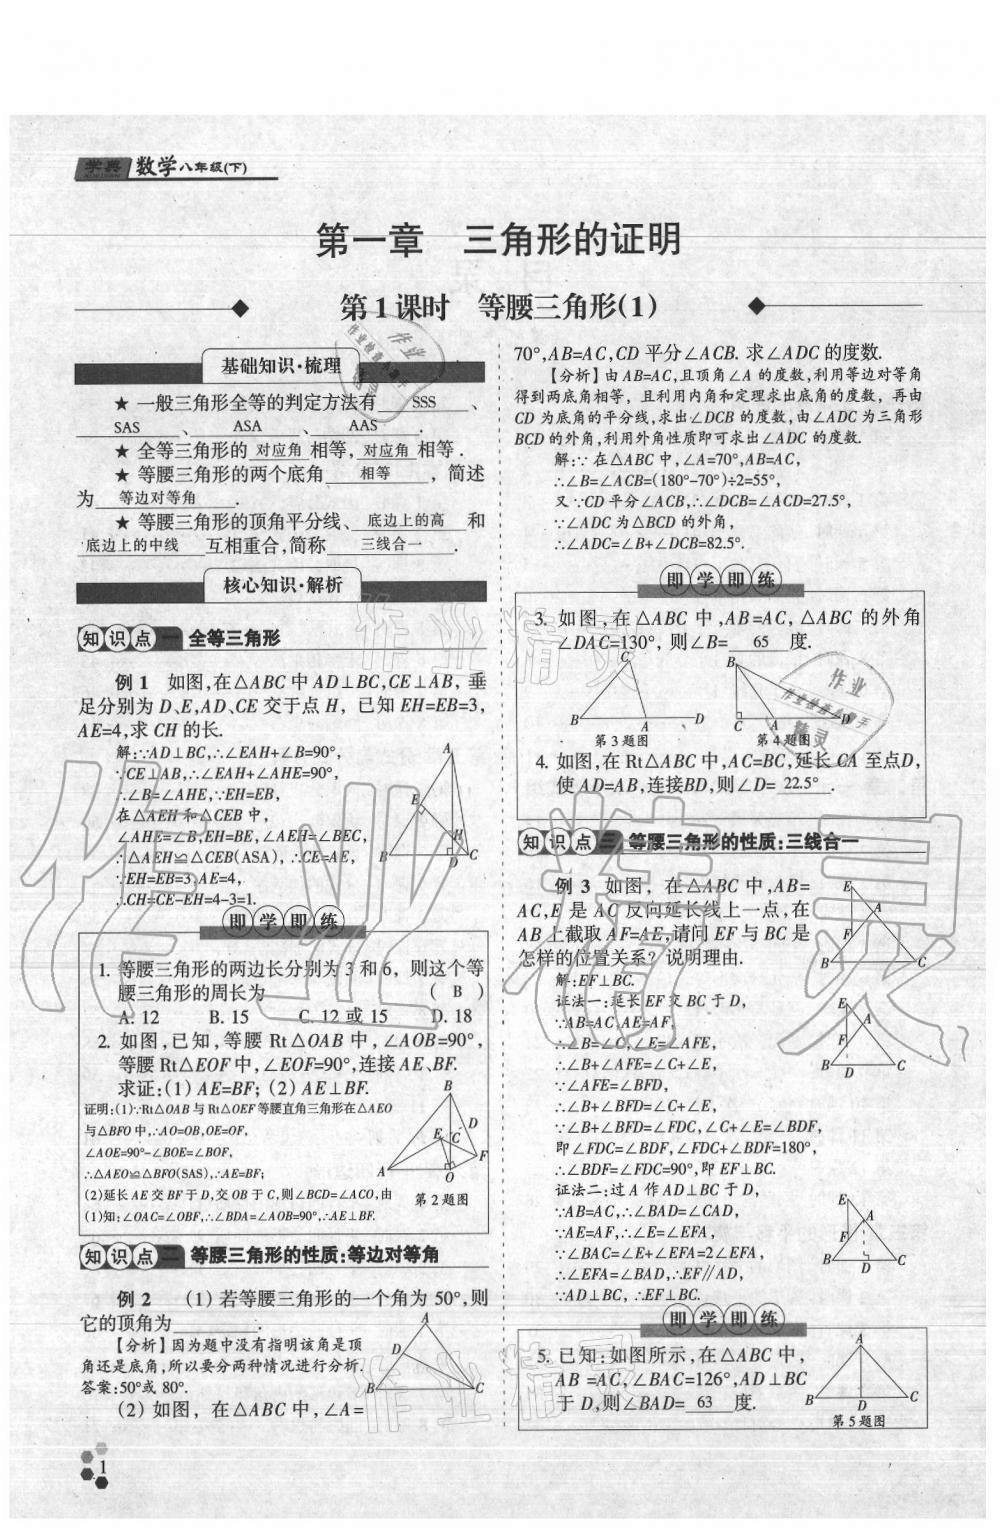 学典 数学八年级(下)
第一章 三角形的证明
第1课时 等腰三角形(1)
基础知识·梳理
★ 一般三角形全等的判定方法有 SSS 、
SAS 、 ASA 、 AAS .
★ 全等三角形的 对应角 相等, 对应角 相等.
★ 等腰三角形的两个底角 相等 ,简述
为 等边对等角 .
★ 等腰三角形的顶角平分线、 底边上的高 和
底边上的中线 互相重合,简称 三线合一 .
核心知识·解析
知识点一 全等三角形
例1 如图,在△ABC中AD⊥BC,CE⊥AB,垂
足分别为D、E,AD、CE交于点H,已知EH=EB=3,
AE=4,求CH的长.
解:∵AD⊥BC,∴∠EAH+∠B=90°,
∵CE⊥AB,∴∠EAH+∠AHE=90°,
∴∠B=∠AHE,∵EH=EB,
在△AEH和△CEB中,
∠AHE=∠B,EH=BE,∠AEH=∠BEC,
∴△AEH≌△CEB(ASA),∴CE=AE,
∵EH=EB=3,AE=4,
∴CH=CE-EH=4-3=1.
A
E
H
B
D
C
即学即练
1. 等腰三角形的两边长分别为3和6,则这个等
腰三角形的周长为 ( B )
A. 12 B. 15 C. 12或15 D. 18
2. 如图,已知,等腰Rt△OAB中,∠AOB=90°,
等腰Rt△EOF中,∠EOF=90°,连接AE、BF.
求证:(1)AE=BF;(2)AE⊥BF.
证明:(1)∵Rt△OAB与Rt△OEF等腰直角三角形在△AEO
与△BFO中,∴AO=OB,OE=OF,
∠AOE=90°-∠BOE=∠BOF,
∴△AEO≌△BFO(SAS),∴AE=BF;
(2)延长AE交BF于D,交OB于C,则∠BCD=∠ACO,由
(1)知:∠OAC=∠OBF,∴∠BDA=∠AOB=90°,∴AE⊥BF.
B
D
E C
F
A
O
第2题图
知识点二 等腰三角形的性质:等边对等角
例2 (1)若等腰三角形的一个角为50°,则
它的顶角为 .
【分析】因为题中没有指明该角是顶
角还是底角,所以要分两种情况进行分析.
答案:50°或80°.
(2)如图,在△ABC中,∠A=
A
D
B
C
1
70°,AB=AC,CD平分∠ACB.求∠ADC的度数.
【分析】由AB=AC,且顶角∠A的度数,利用等边对等角
得到两底角相等,且利用内角和定理求出底角的度数,再由
CD为底角的平分线,求出∠DCB的度数,由∠ADC为三角形
BCD的外角,利用外角性质即可求出∠ADC的度数.
解:∵在△ABC中,∠A=70°,AB=AC,
∴∠B=∠ACB=(180°-70°)÷2=55°,
又∵CD平分∠ACB,∴∠DCB=∠ACD=27.5°,
∵∠ADC为△BCD的外角,
∴∠ADC=∠B+∠DCB=82.5°.
即学即练
3. 如图,在△ABC中,AB=AC,△ABC的外角
∠DAC=130°,则∠B= 65 度.
C
B
A
D
第3题图
B
C
A
D
第4题图
4. 如图,在Rt△ABC中,AC=BC,延长CA至点D,
使AD=AB,连接BD,则∠D= 22.5° .
知识点三 等腰三角形的性质:三线合一
例3 如图,在△ABC中,AB=
AC,E是AC反向延长线上一点,在
AB上截取AF=AE,请问EF与BC是
怎样的位置关系?说明理由.
E
A
F
B
C
解:EF⊥BC.
证法一:延长EF交BC于D,
∵AB=AC,AE=AF,
∴∠B=∠C,∠E=∠AFE,
∴∠B+∠AFE=∠C+∠E,
∵∠AFE=∠BFD,
∴∠B+∠BFD=∠C+∠E,
∵∠B+∠BFD=∠FDC,∠C+∠E=∠BDF,
即∠FDC=∠BDF,∠FDC+∠BDF=180°,
∴∠BDF=∠FDC=90°,即EF⊥BC.
证法二:过A作AD⊥BC于D,
∵AB=AC,∴∠BAD=∠CAD,
∵AE=AF,∴∠E=∠EFA,
∵∠BAC=∠E+∠EFA=2∠EFA,
∴∠EFA=∠BAD,∴EF∥AD,
∵AD⊥BC,∴EF⊥BC.
E
A
F
B
D
C
E
A
F
B
D
C
即学即练
5. 已知:如图所示,在△ABC中,
AB=AC,∠BAC=126°,AD⊥BC
于D,则∠BAD= 63 度.
A
B
D
C
第5题图
作业精灵
作业精灵
作业精灵
作业检查小助手
作业精灵
作业检查小助手
作业精灵